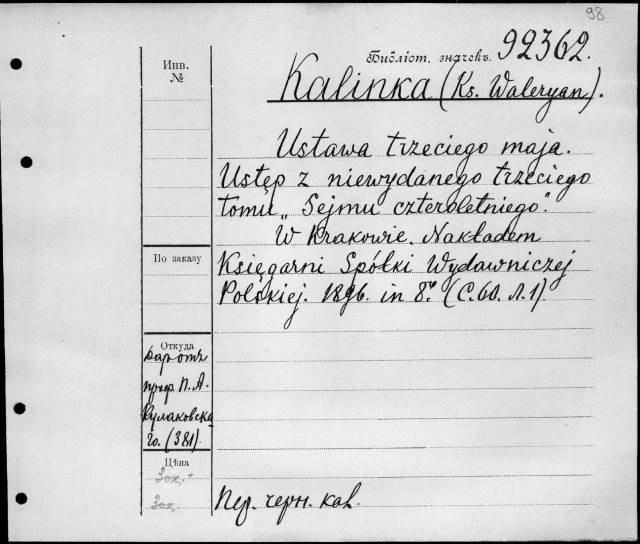 98
Библіот. значекъ. 92362.
Инв.
№
Kalinka (Ks. Waleryan).
Ustawa trzeciego maja.
Ustęp z niewydanego trzeciego
tomu „Sejmu czteroletniego".
W Krakowie. Nakładem
По заказу
Księgarni Spółki Wydawniczej
Polskiej. 1896. in 8º. (С. 60. Л. 1).
Откуда
Даръ отъ
проф. П. А.
Кулаковска
го. (381).
Цѣна
Пер. черн. кол.